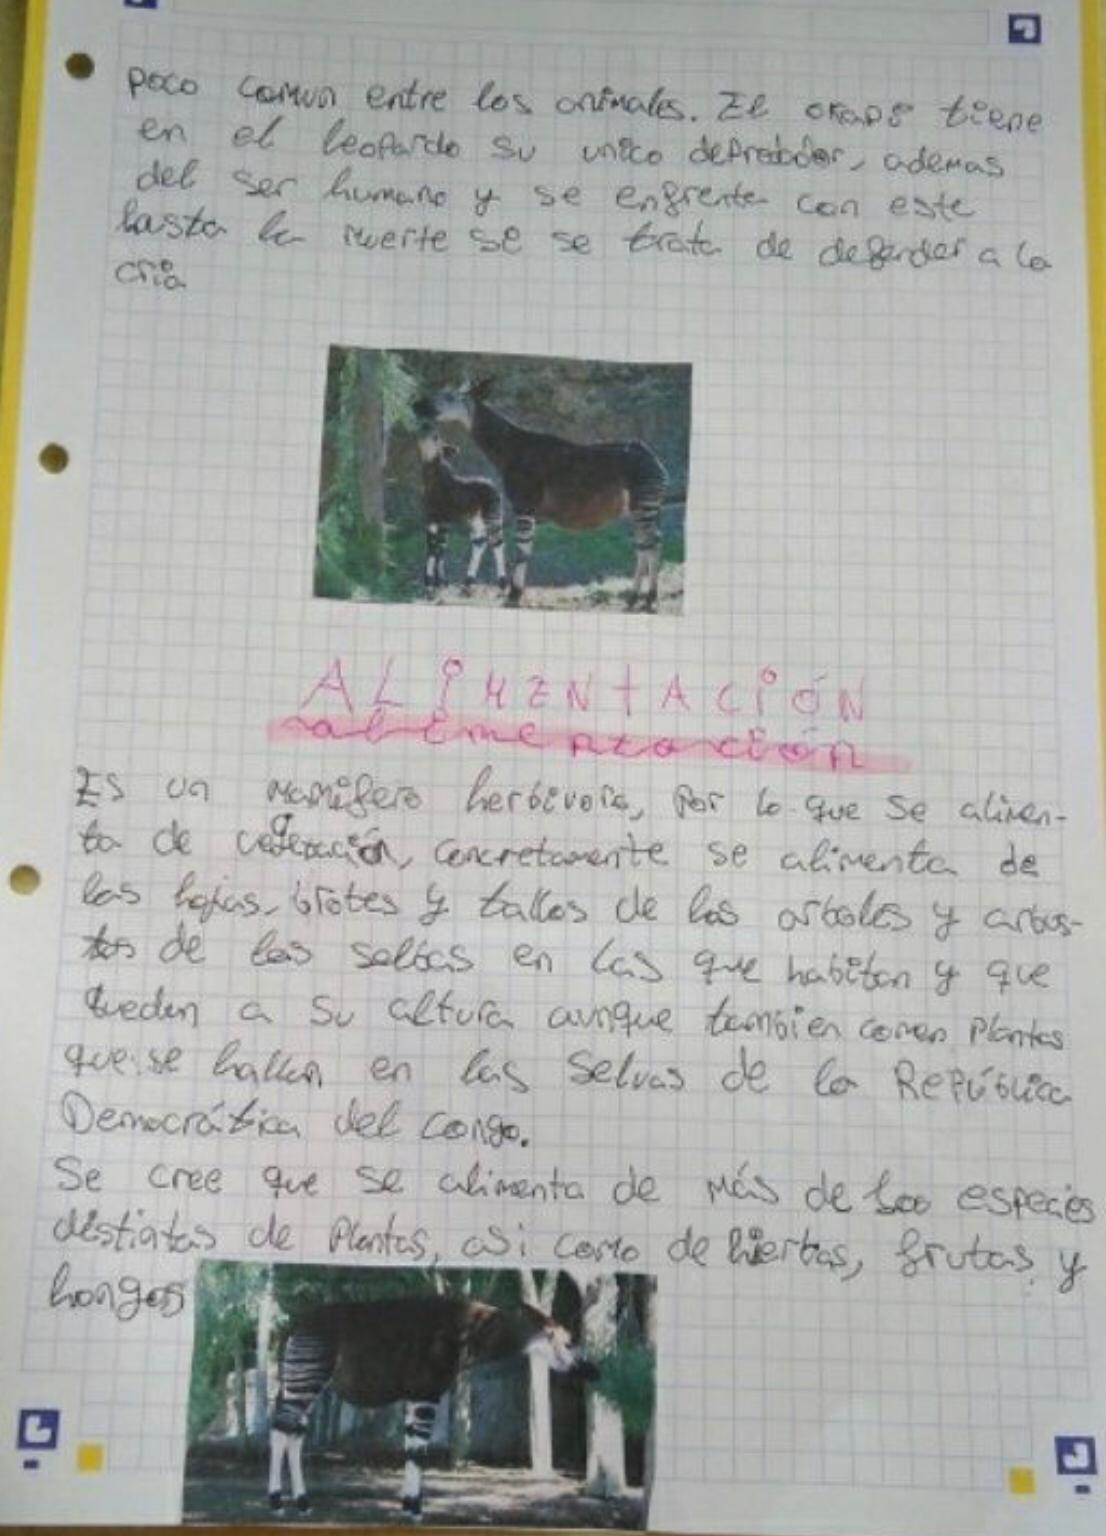 poco comun entre los animales. El okapi tiene
en el leopardo su unico depredador, ademas
del ser humano y se enfrenta con este
hasta la muerte se se trata de defender a la
cria
ALIMENTACIÓN
alimentación
Es un mamifero herbivoro, Por lo que se alimen-
ta de vegetación, concretamente se alimenta de
las hojas, brotes y tallos de los arboles y arbus-
tos de las selbas en las que habitan y que
queden a su altura aunque tambien comen Plantas
que se hallan en las selvas de la República
Democrática del congo.
Se cree que se alimenta de más de 100 especies
distintas de Plantas, asi como de hiertas, frutas y
hongos